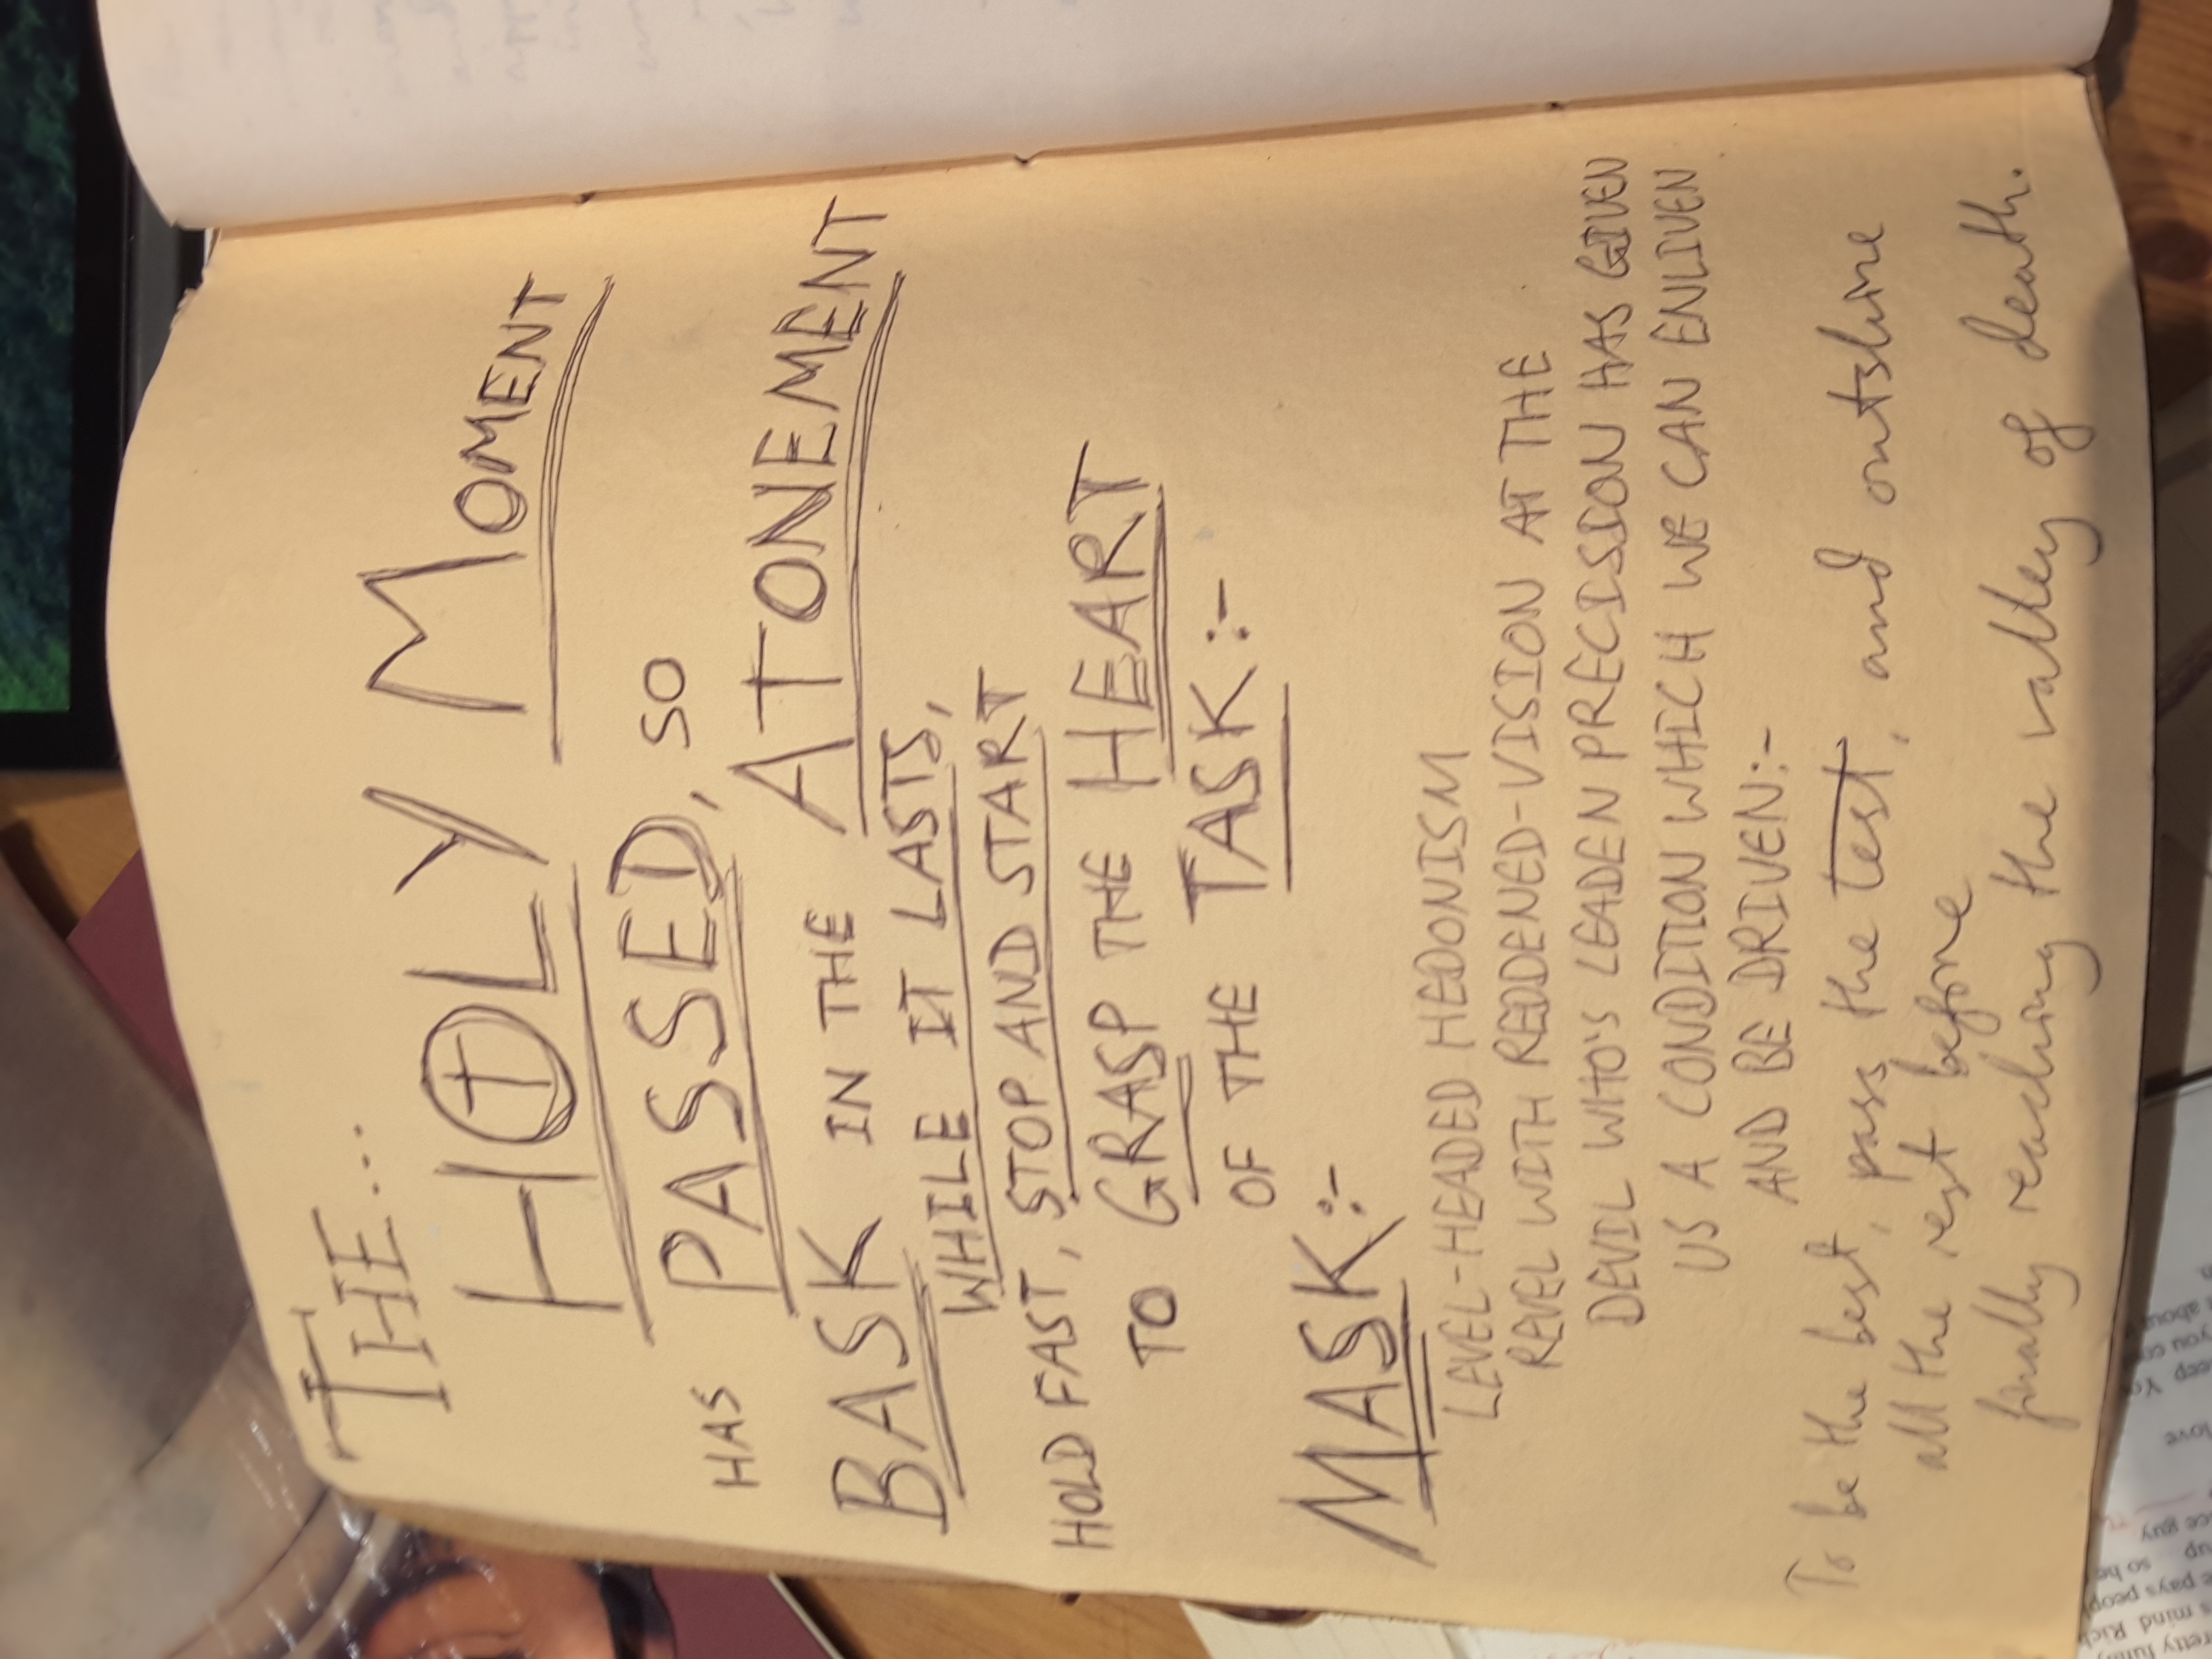 THE...
HOLY MOMENT
HAS PASSED, SO
BASK IN THE ATONEMENT
WHILE IT LASTS,
HOLD FAST, STOP AND START
TO GRASP THE HEART
OF THE TASK :-
MASK :-
LEVEL-HEADED HEDONISM
REVEL WITH REDDENED-VISION AT THE
DEVIL WHO'S LEADEN PRECISION HAS GIVEN
US A CONDITION WHICH WE CAN ENLIVEN
AND BE DRIVEN:-
To be the best, pass the test, and outshine
all the rest before
finally reaching the valley of death.